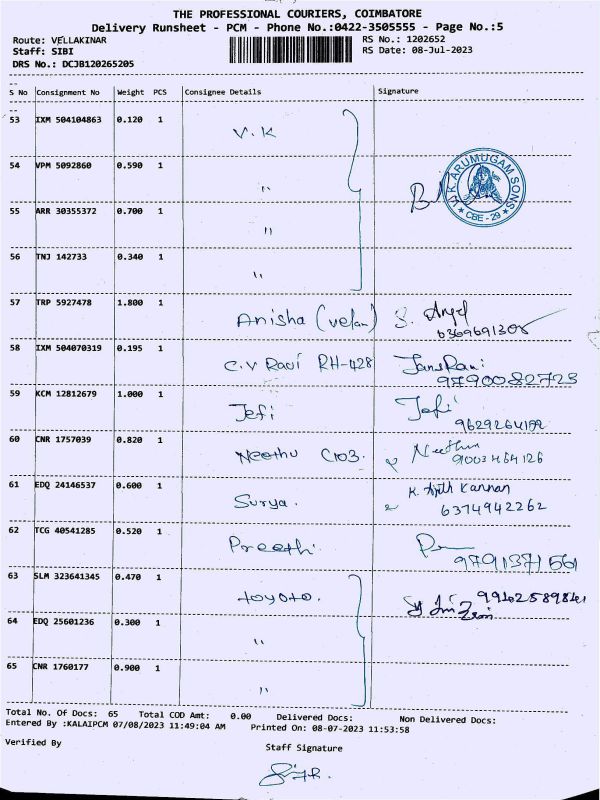 THE PROFESSIONAL COURIERS, COIMBATORE
Delivery Runsheet - PCM - Phone No.:0422-3505555 - Page No.:5
Route: VELLAKINAR
RS No.: 1202652
Staff: SIBI
RS Date: 08-Jul-2023
DRS No.: DCJB120265205
S No Consignment No Weight PCS Consignee Details Signature
53 IXM 504104863 0.120 1 V.K
54 VPM 5092860 0.590 1 "
V.K. ARUMUGAM SONS
CBE - 29
55 ARR 30355372 0.700 1 "
56 TNJ 142733 0.340 1 "
57 TRP 5927478 1.800 1 Anisha (velan) S. Angel
6369691308
58 IXM 504070319 0.195 1 C.V Ravi RH-428 JansRani
9790082723
59 KCM 12812679 1.000 1 Jefi Jefi
9629264192
60 CNR 1757039 0.820 1 Neethu C103. Neethu
9003464126
61 EDQ 24146537 0.600 1 Surya. K. Ajith Kannan
6374942262
62 TCG 40541285 0.520 1 Preethi.
9791371561
63 SLM 323641345 0.470 1 toyoto.
64 EDQ 25601236 0.300 1 "
65 CNR 1760177 0.900 1 "
Total No. Of Docs: 65 Total COD Amt: 0.00 Delivered Docs: Non Delivered Docs:
Entered By :KALAIPCM 07/08/2023 11:49:04 AM Printed On: 08-07-2023 11:53:58
Verified By
Staff Signature